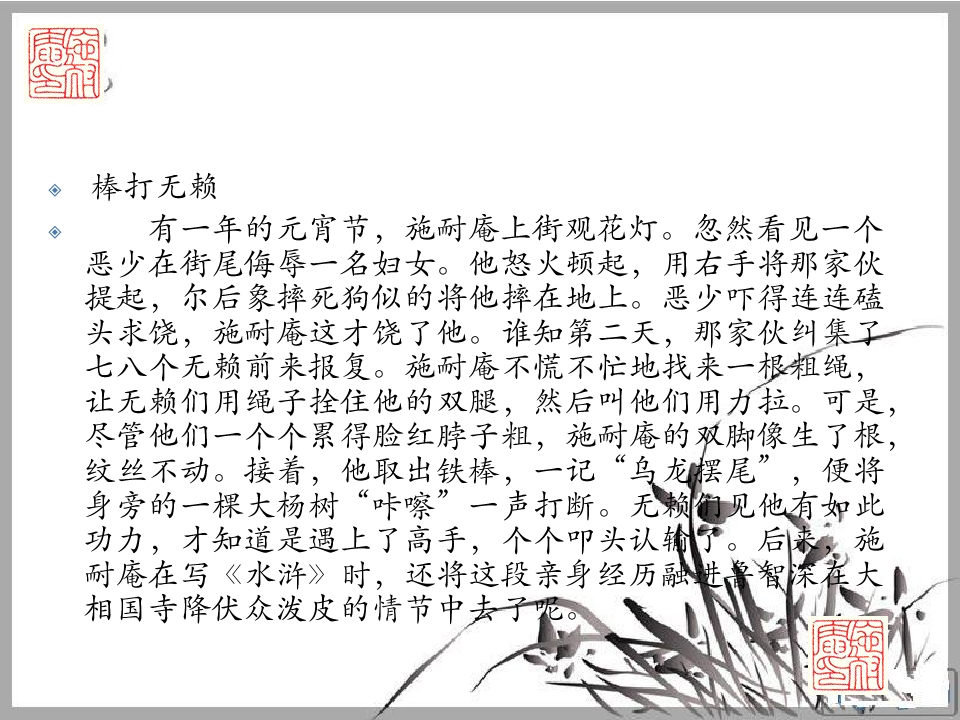 棒打无赖
有一年的元宵节，施耐庵上街观花灯。忽然看见一个
恶少在街尾侮辱一名妇女。他怒火顿起，用右手将那家伙
提起，尔后象摔死狗似的将他摔在地上。恶少吓得连连磕
头求饶，施耐庵这才饶了他。谁知第二天，那家伙纠集了
七八个无赖前来报复。施耐庵不慌不忙地找来一根粗绳，
让无赖们用绳子拴住他的双腿，然后叫他们用力拉。可是，
尽管他们一个个累得脸红脖子粗，施耐庵的双脚像生了根，
纹丝不动。接着，他取出铁棒，一记“乌龙摆尾”，便将
身旁的一棵大杨树“咔嚓”一声打断。无赖们见他有如此
功力，才知道是遇上了高手，个个叩头认输了。后来，施
耐庵在写《水浒》时，还将这段亲身经历融进鲁智深在大
相国寺降伏众泼皮的情节中去了呢。